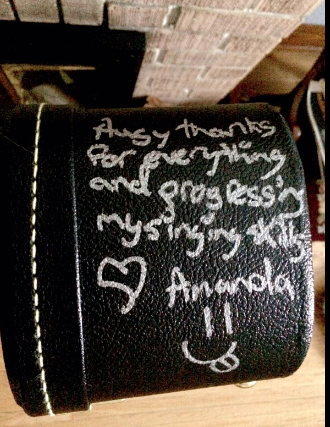 Augy thanks
for everything
and progressing
my singing skills
Amanda